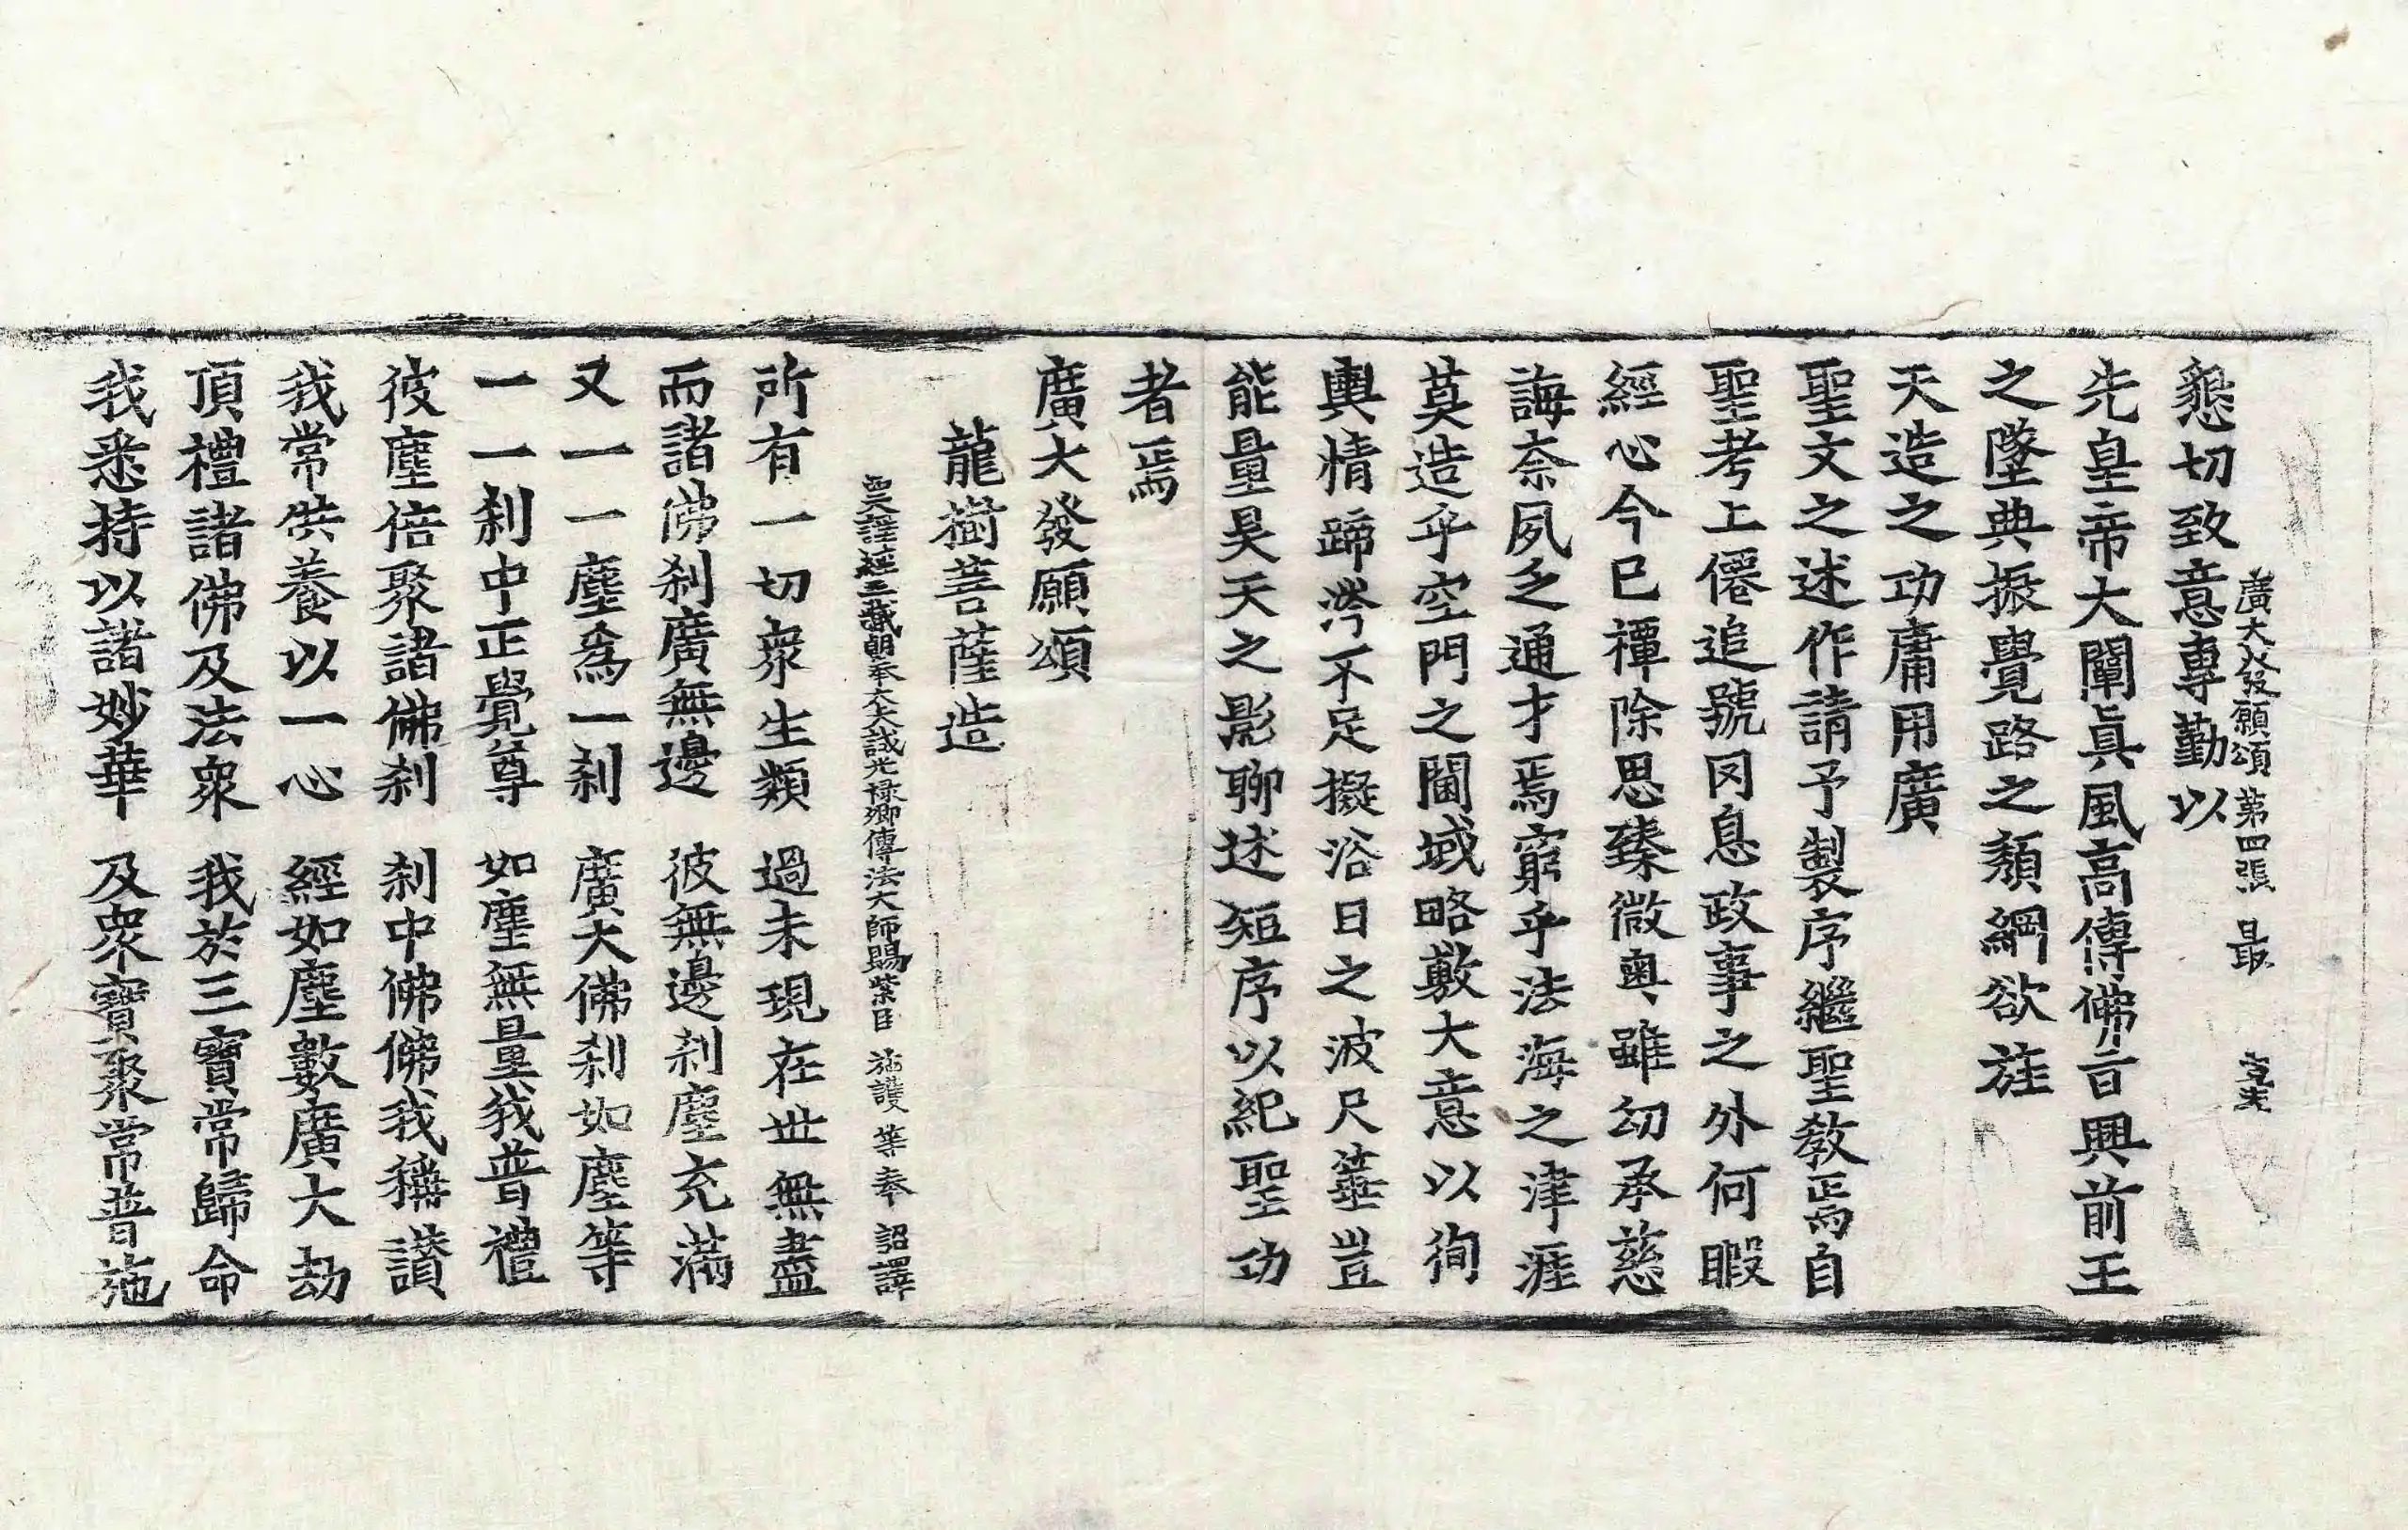 廣大發願頌 第四張 最
懇切致意專勤以
先皇帝大闡眞風高傳佛言興前王
之墜典振覺路之頹綱欲旌
天造之功庸用廣
聖文之述作請予製序繼聖教焉自
聖考上僊追號罔息政事之外何暇
經心今已禫除思臻微奧雖幼承慈
誨奈夙乏通才焉窮乎法海之津涯
莫造乎空門之閫域略敷大意以徇
輿情蹄涔不足擬浴日之波尺箠豈
能量昊天之影聊述短序以紀聖功
者焉
廣大發願頌
龍樹菩薩造
西天譯經三藏朝奉大夫試光祿卿傳法大師賜紫臣 施護 等奉 詔譯
所有一切衆生類 過未現在世無盡
而諸佛刹廣無邊 彼無邊刹塵充滿
又一一塵爲一刹 廣大佛刹如塵等
一一刹中正覺尊 如塵無量我普禮
彼塵倍聚諸佛刹 刹中佛佛我稱讚
我常供養以一心 經如塵數廣大劫
頂禮諸佛及法衆 我於三寶常歸命
我悉持以諸妙華 及衆寶聚常普施